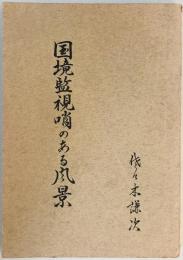 国境監視哨のある風景
代々木謙次